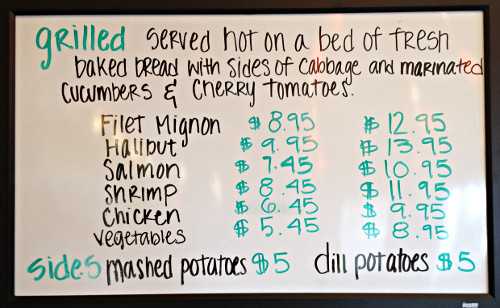 grilled served hot on a bed of fresh
baked bread with sides of cabbage and marinated
cucumbers & cherry tomatoes.
Filet Mignon $8.95 $12.95
Halibut $9.95 $13.95
Salmon $7.45 $10.95
Shrimp $8.45 $11.95
Chicken $6.45 $9.95
vegetables $5.45 $8.95
sides mashed potatoes $5 dill potatoes $5